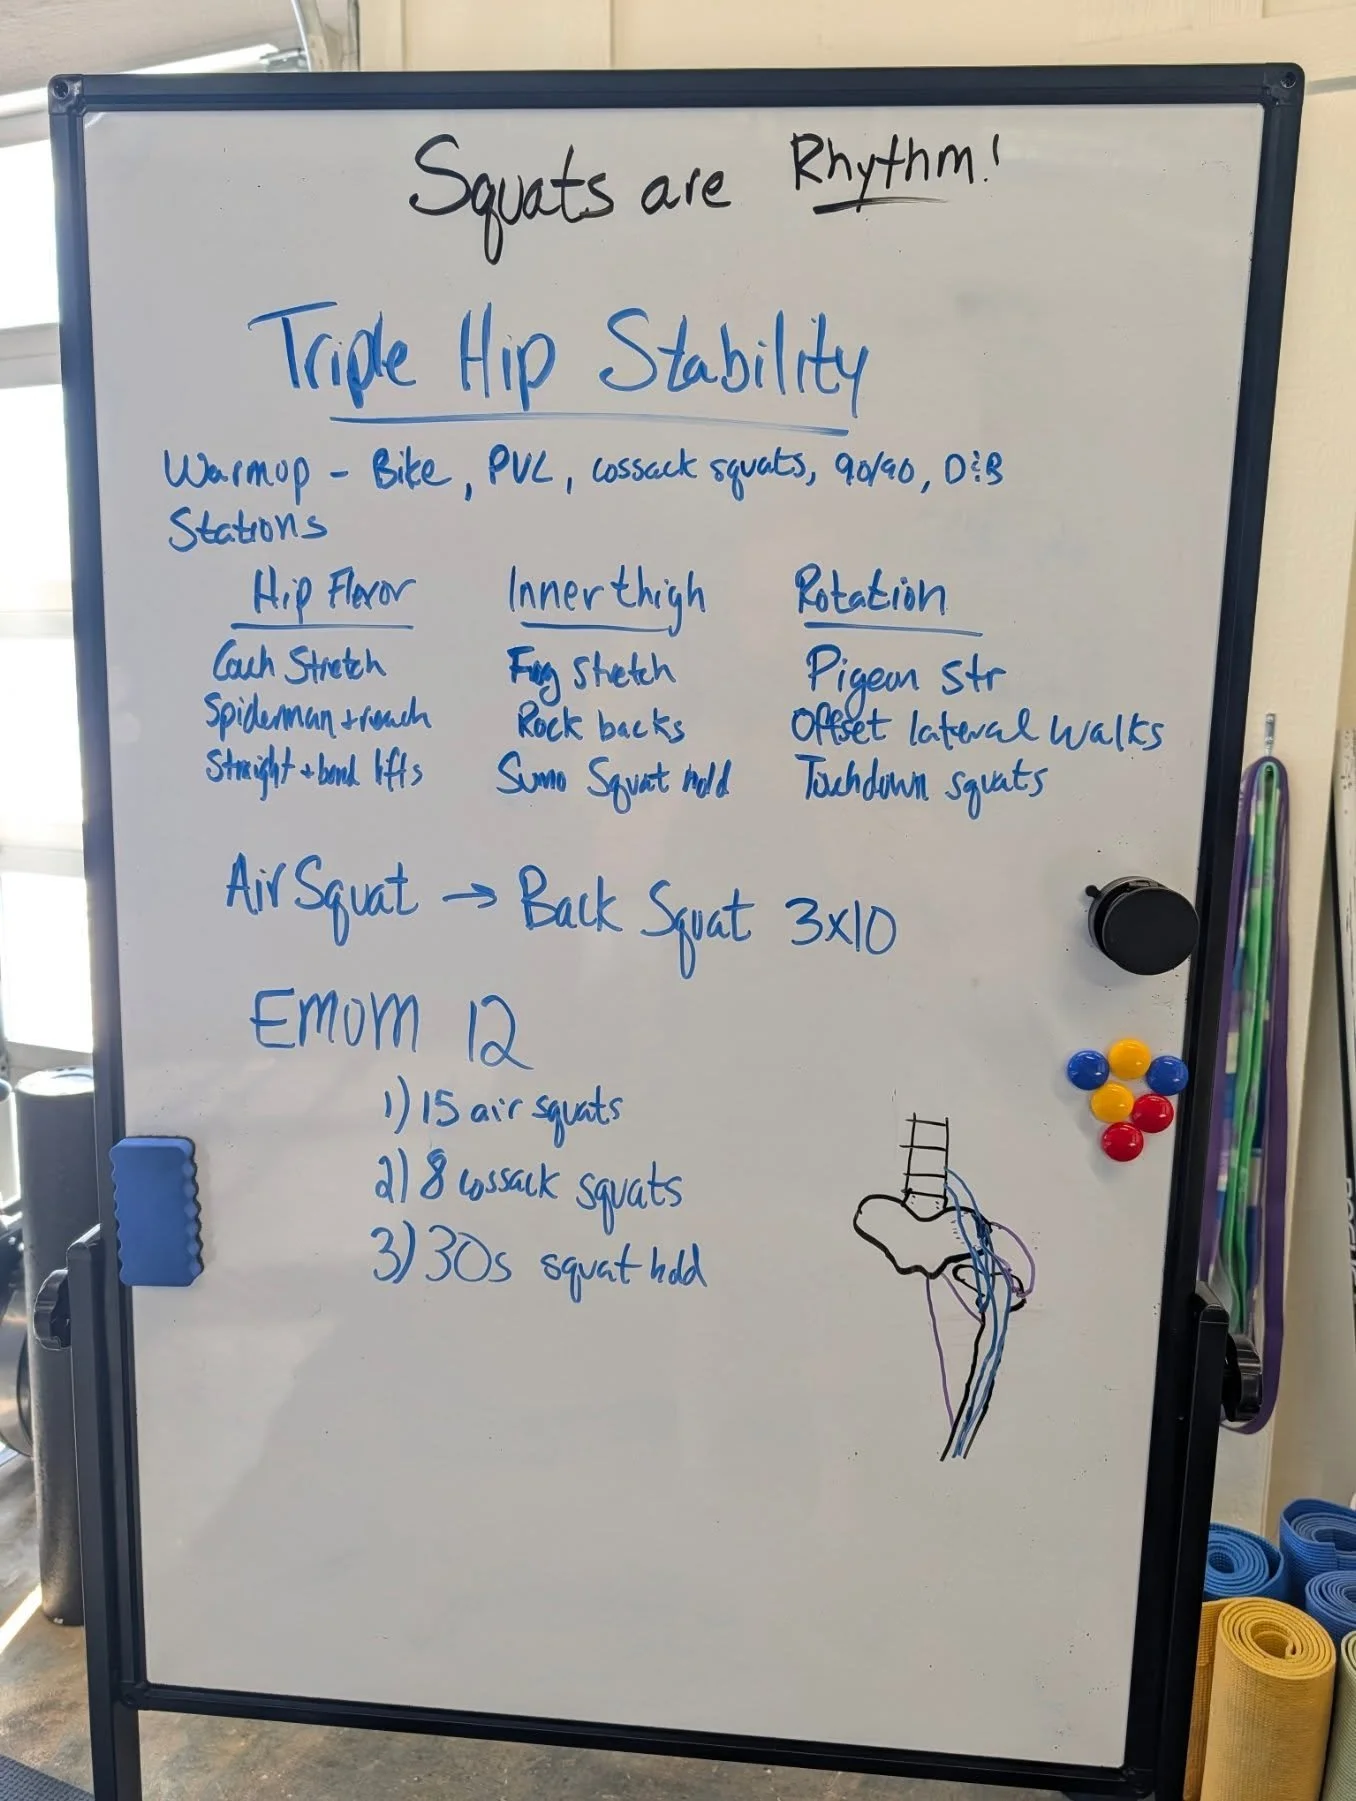 Squats are Rhythm!
Triple Hip Stability
Warmup - Bike, PVC, cossack squats, 90/90, D&B
Stations
Hip Flexor
Couch Stretch
Spiderman + reach
Straight + bend lifts
Inner thigh
Frog stretch
Rock backs
Sumo Squat hold
Rotation
Pigeon str
Offset lateral walks
Touchdown squats
Air Squat → Back Squat 3x10
EMOM 12
1) 15 air squats
2) 8 cossack squats
3) 30s squat hold